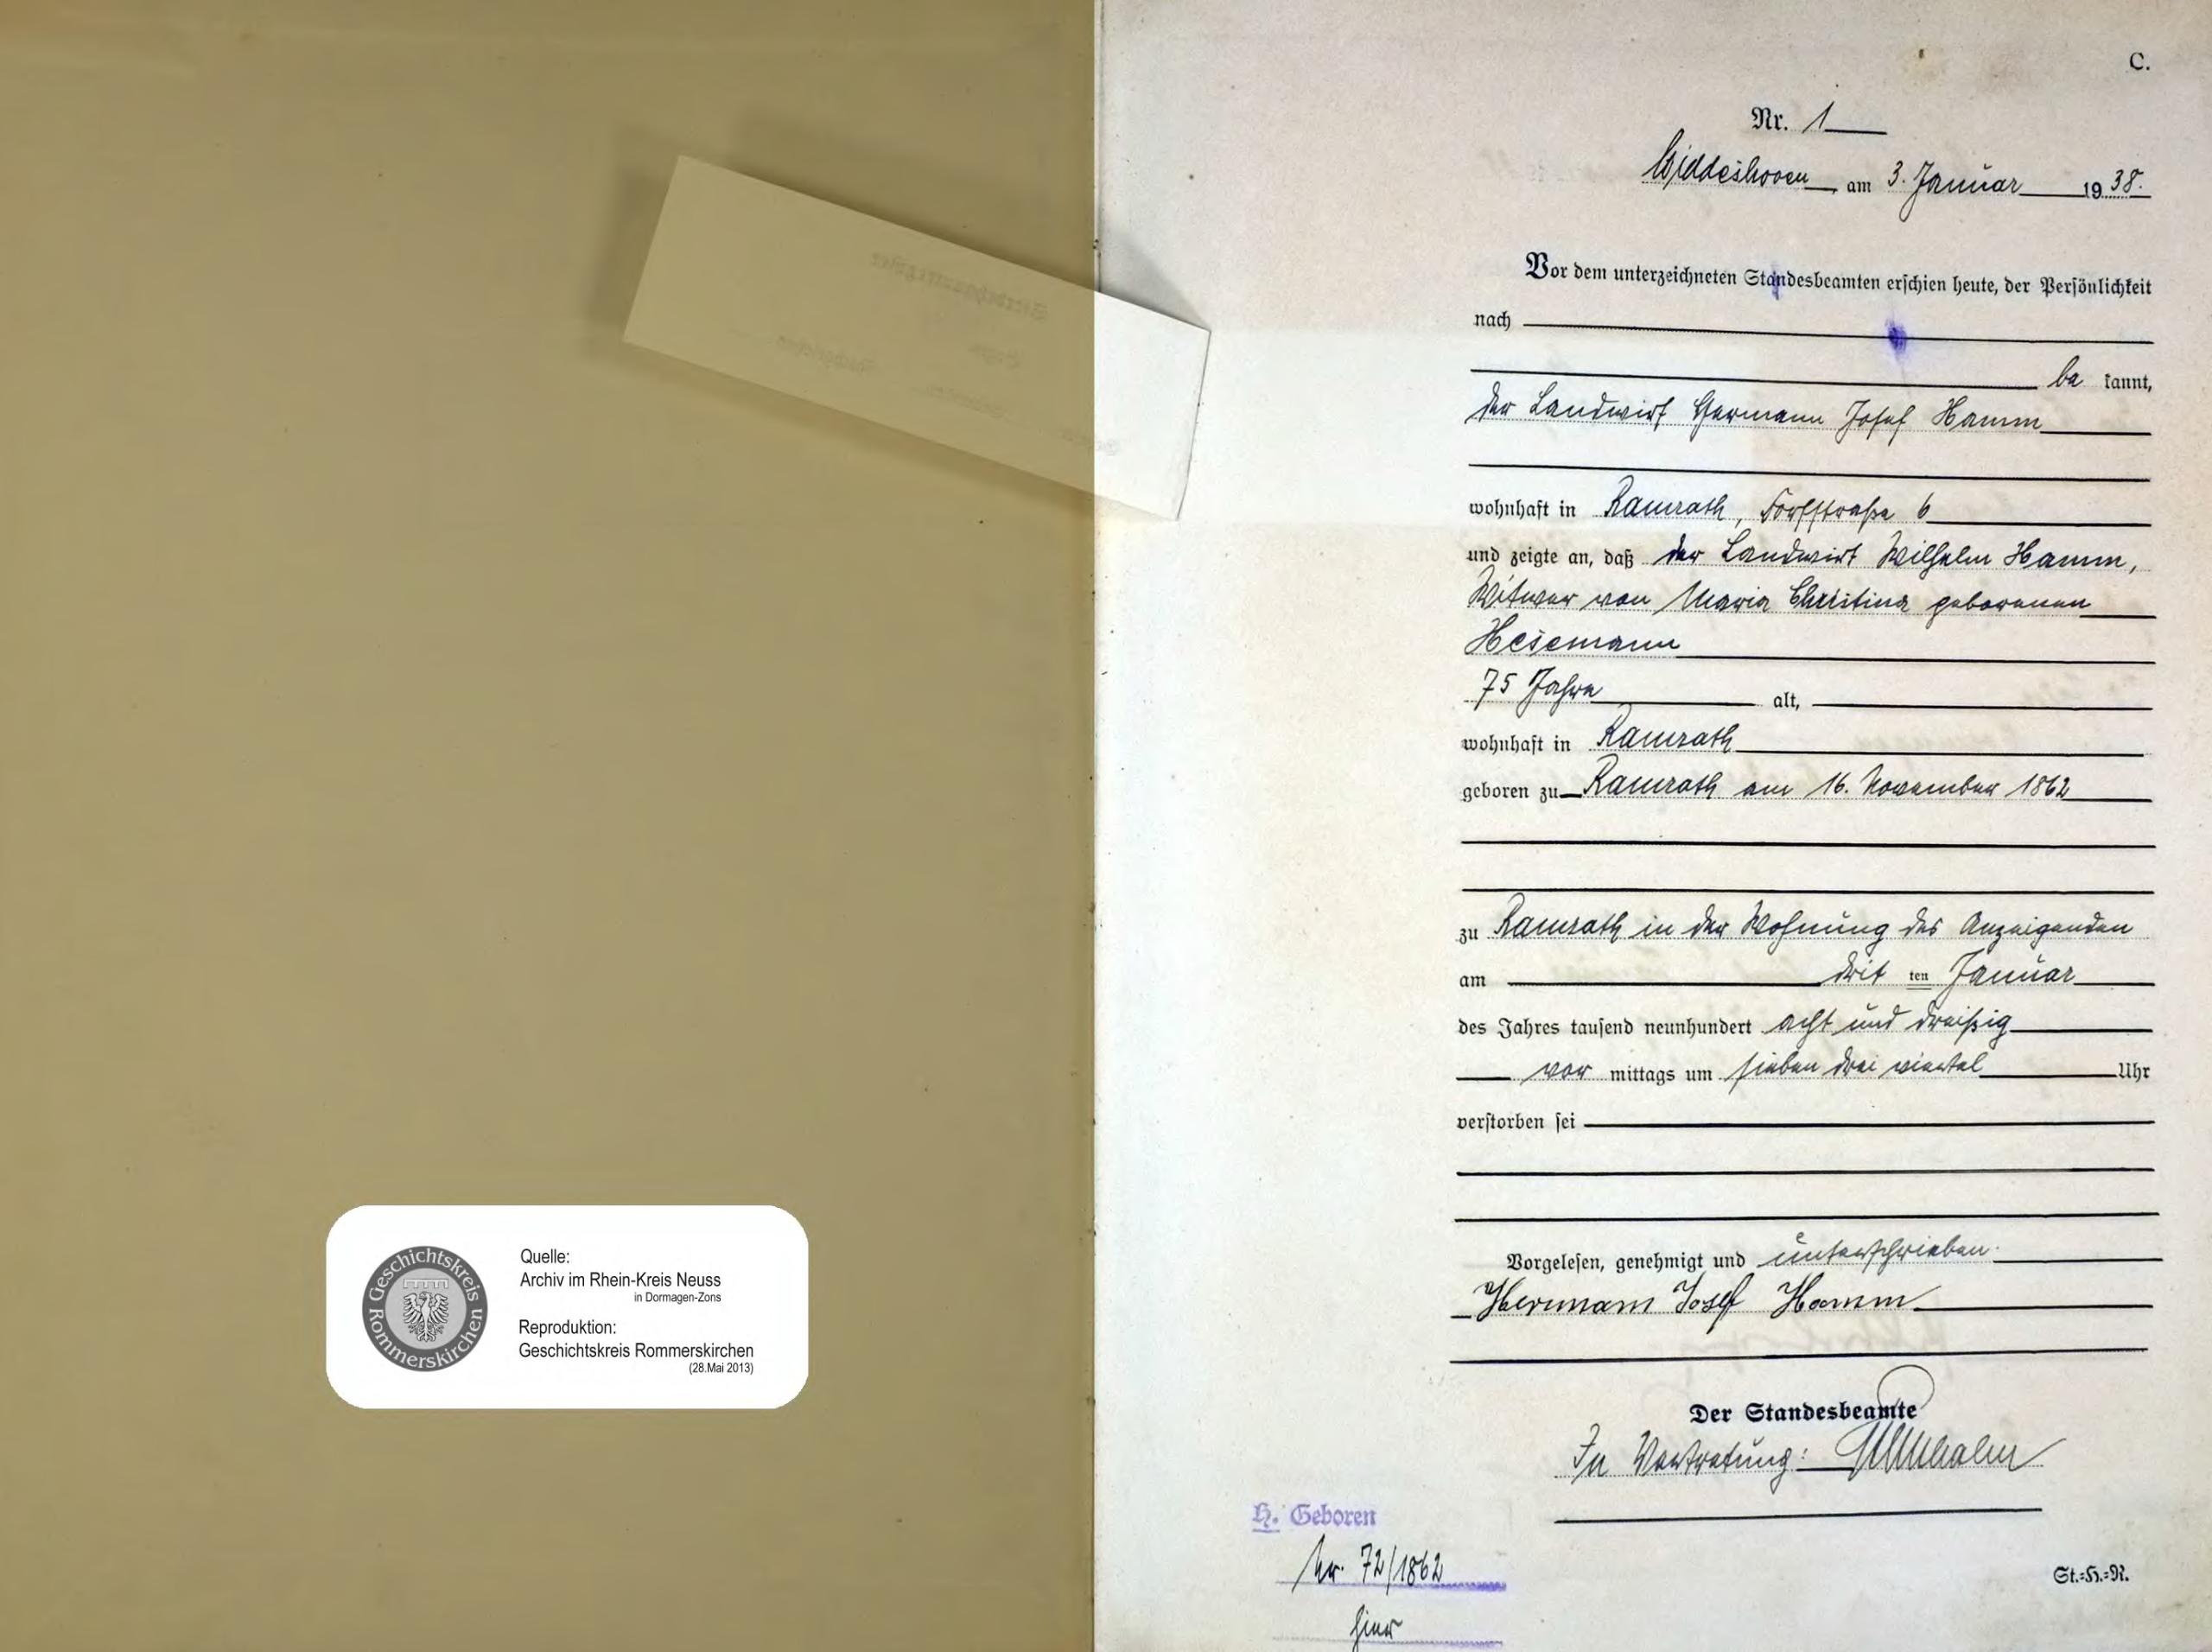 C.
Nr. 1
Widdeshoven, am 3. Januar 19 38.
Vor dem unterzeichneten Standesbeamten erschien heute, der Persönlichkeit
nach
be kannt,
der Landwirt Hermann Josef Hamm
wohnhaft in Ramrath, Dorfstraße 6
und zeigte an, daß der Landwirt Wilhelm Hamm,
Witwer von Maria Christina geborenen
Hesemann
75 Jahre alt,
wohnhaft in Ramrath
geboren zu Ramrath am 16. November 1862
zu Ramrath in der Wohnung des Anzeigenden
am drit ten Januar
des Jahres tausend neunhundert acht und dreißig
vor mittags um sieben drei viertel Uhr
verstorben sei
Vorgelesen, genehmigt und unterschrieben.
Hermann Josef Hamm
Der Standesbeamte
In Vertretung:
H. Geboren
Nr. 72/1862
hier
St.=H.=R.
Geschichtskreis
Rommerskirchen
Quelle:
Archiv im Rhein-Kreis Neuss
in Dormagen-Zons
Reproduktion:
Geschichtskreis Rommerskirchen
(28.Mai 2013)